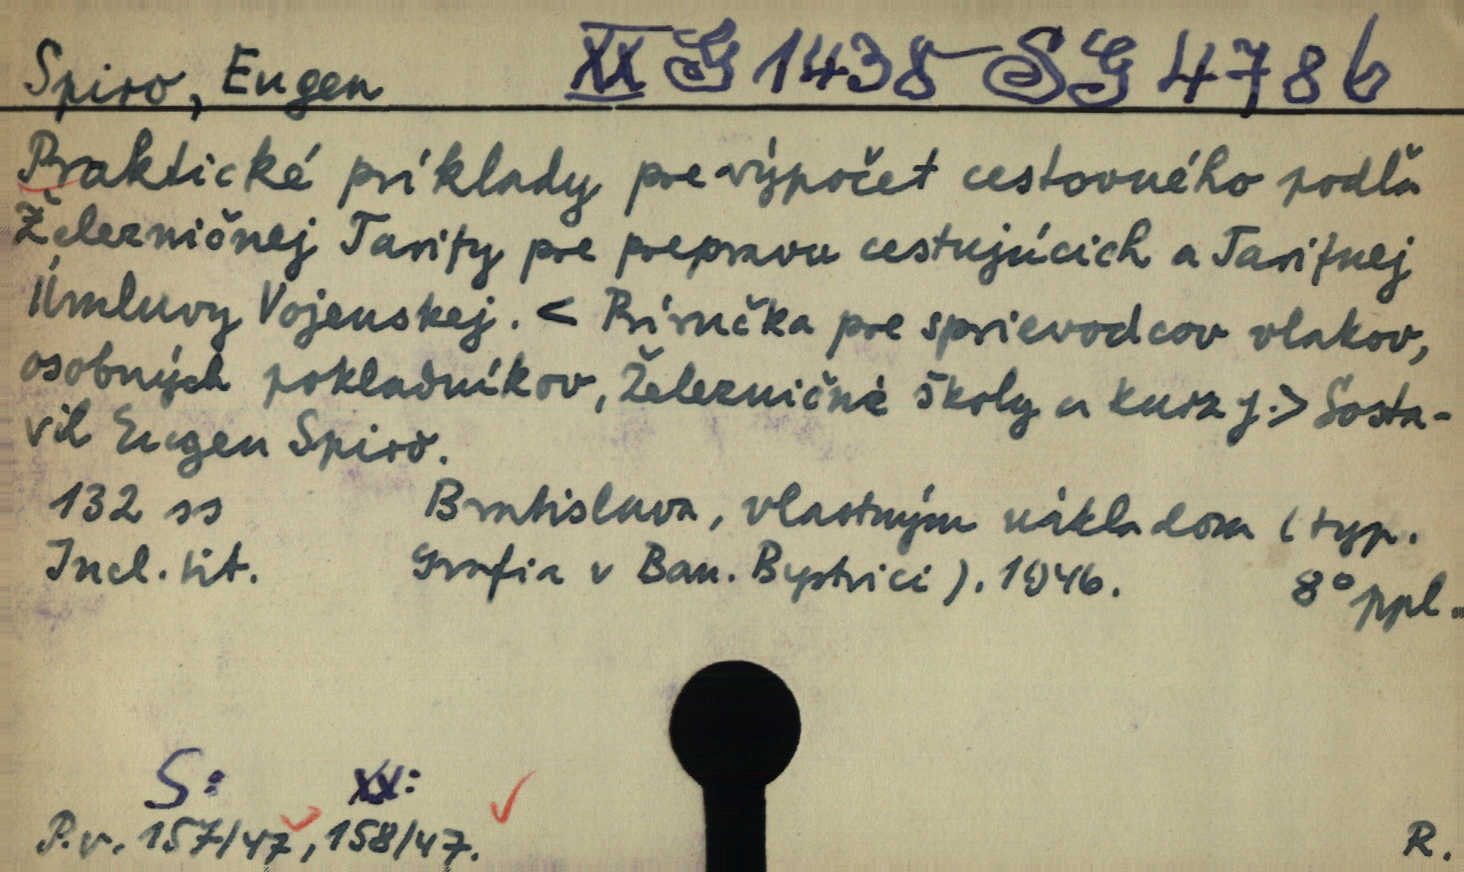 Spiro, Eugen XX G 1438 - SG 4786
Praktické príklady pre výpočet cestovného podľa
Železničnej Tarify pre prepravu cestujúcich a Tarifnej
Úmluvy Vojenskej. < Príručka pre sprievodcov vlakov,
osobných pokladníkov, Železničné školy a kurzy. > Sosta-
vil Eugen Spiro.
132 ss Bratislava, vlastným nákladom (typ.
Incl. tit. Grafia v Ban. Bystrici). 1946. 8° ppl.
S: XX:
P.v. 157/47, 158/47.
R.